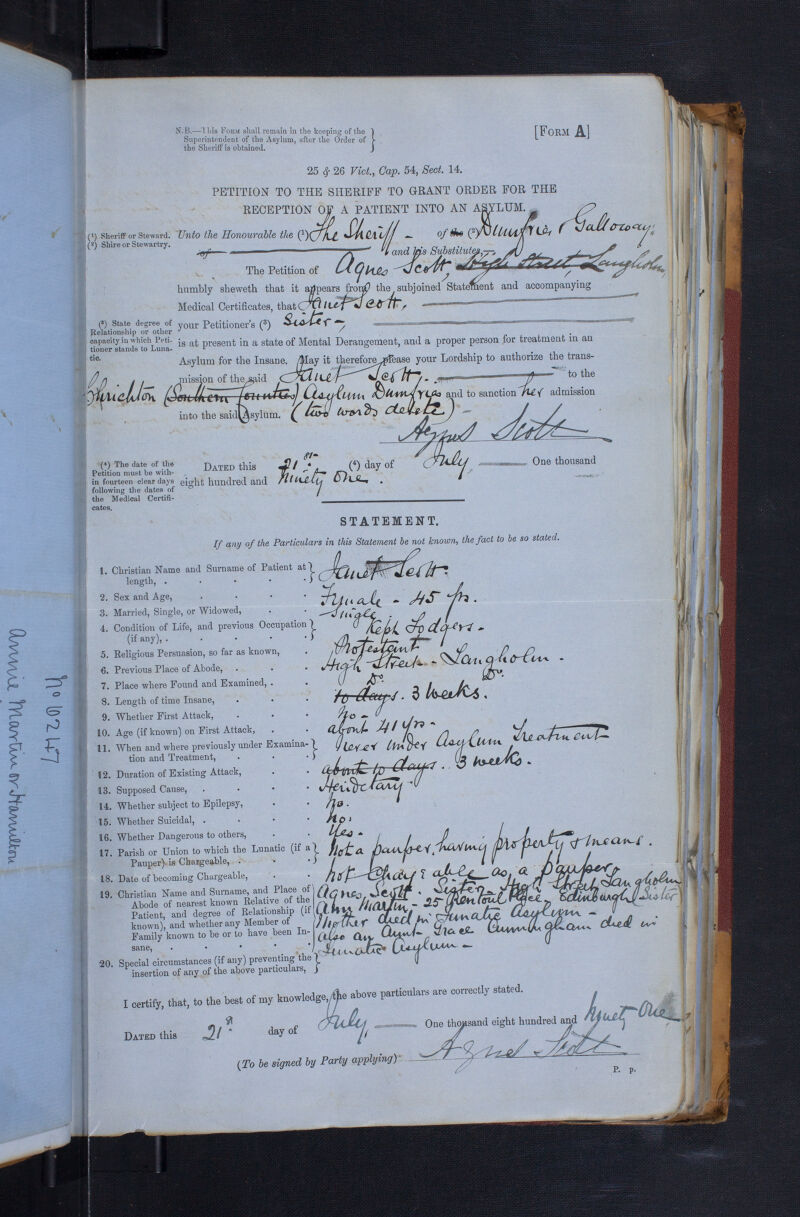 N.B.—This Form shall remain in the keeping of the
Superintendent of the Asylum, after the Order of
the Sheriff is obtained.
[Form A]
25 & 26 Vict., Cap. 54, Sect. 14.
PETITION TO THE SHERIFF TO GRANT ORDER FOR THE
RECEPTION OF A PATIENT INTO AN ASYLUM.
(¹) Sheriff or Steward.
(²) Shire or Stewartry.
Unto the Honourable the (¹) The Sheriff - of the (²) Dumfries & Galloway,
of and his Substitutes,—
The Petition of Agnes Scott, High Street, Langholm,
humbly sheweth that it appears from the subjoined Statement and accompanying
Medical Certificates, that Janet Scott,
(³) State degree of Relationship or other capacity in which Petitioner stands to Lunatic.
your Petitioner's (³) Sister -,
is at present in a state of Mental Derangement, and a proper person for treatment in an
Asylum for the Insane. May it therefore please your Lordship to authorize the trans-
mission of the said Janet Scott, to the
Chrichton (Southern Counties) Asylum Dumfries and to sanction her admission
into the said Asylum. (two words delete)
Agnes Scott
(⁴) The date of the Petition must be within fourteen clear days following the dates of the Medical Certificates.
Dated this 21st (⁴) day of July, One thousand
eight hundred and Ninety One.
STATEMENT.
If any of the Particulars in this Statement be not known, the fact to be so stated.
1. Christian Name and Surname of Patient at length, . Janet Scott.
2. Sex and Age, Female - 45 yrs.
3. Married, Single, or Widowed, Single
4. Condition of Life, and previous Occupation (if any), . Kept Lodgers -
5. Religious Persuasion, so far as known, Protestant
6. Previous Place of Abode, . High Street - Langholm -
7. Place where Found and Examined, . Do. Do.
8. Length of time Insane, 10 days. 3 Weeks.
9. Whether First Attack, No -
10. Age (if known) on First Attack, about 41 yrs -
11. When and where previously under Examination and Treatment, Never under Asylum Treatment
12. Duration of Existing Attack, about 10 days. 3 weeks.
13. Supposed Cause, Heridetary -
14. Whether subject to Epilepsy, No.
15. Whether Suicidal, . No.
16. Whether Dangerous to others, Yes -
17. Parish or Union to which the Lunatic (if a Pauper) is Chargeable, . Not a pauper, having property & means.
18. Date of becoming Chargeable, Not Chargeable as a Pauper
19. Christian Name and Surname, and Place of Abode of nearest known Relative of the Patient, and degree of Relationship (if known), and whether any Member of Family known to be or to have been Insane,
Agnes Scott. Sister - High Street, Langholm
Ann Martin - 25 Rentoul Place Edinburgh Sister
Mother died in Lunatic Asylum -
also an Aunt Grace Cunningham died in
Lunatic Asylum -
20. Special circumstances (if any) preventing the insertion of any of the above particulars,
I certify, that, to the best of my knowledge, the above particulars are correctly stated.
Dated this 21st day of July, One thousand eight hundred and Ninety One
(To be signed by Party applying) Agnes Scott
P. p.
No 10247
Annie Martin or Hamilton